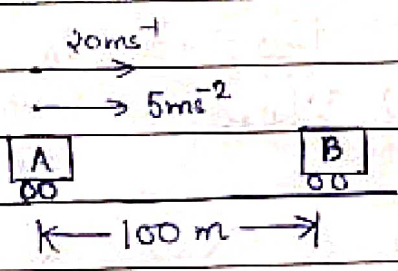 20ms⁻¹
5ms⁻²
A B
100 m